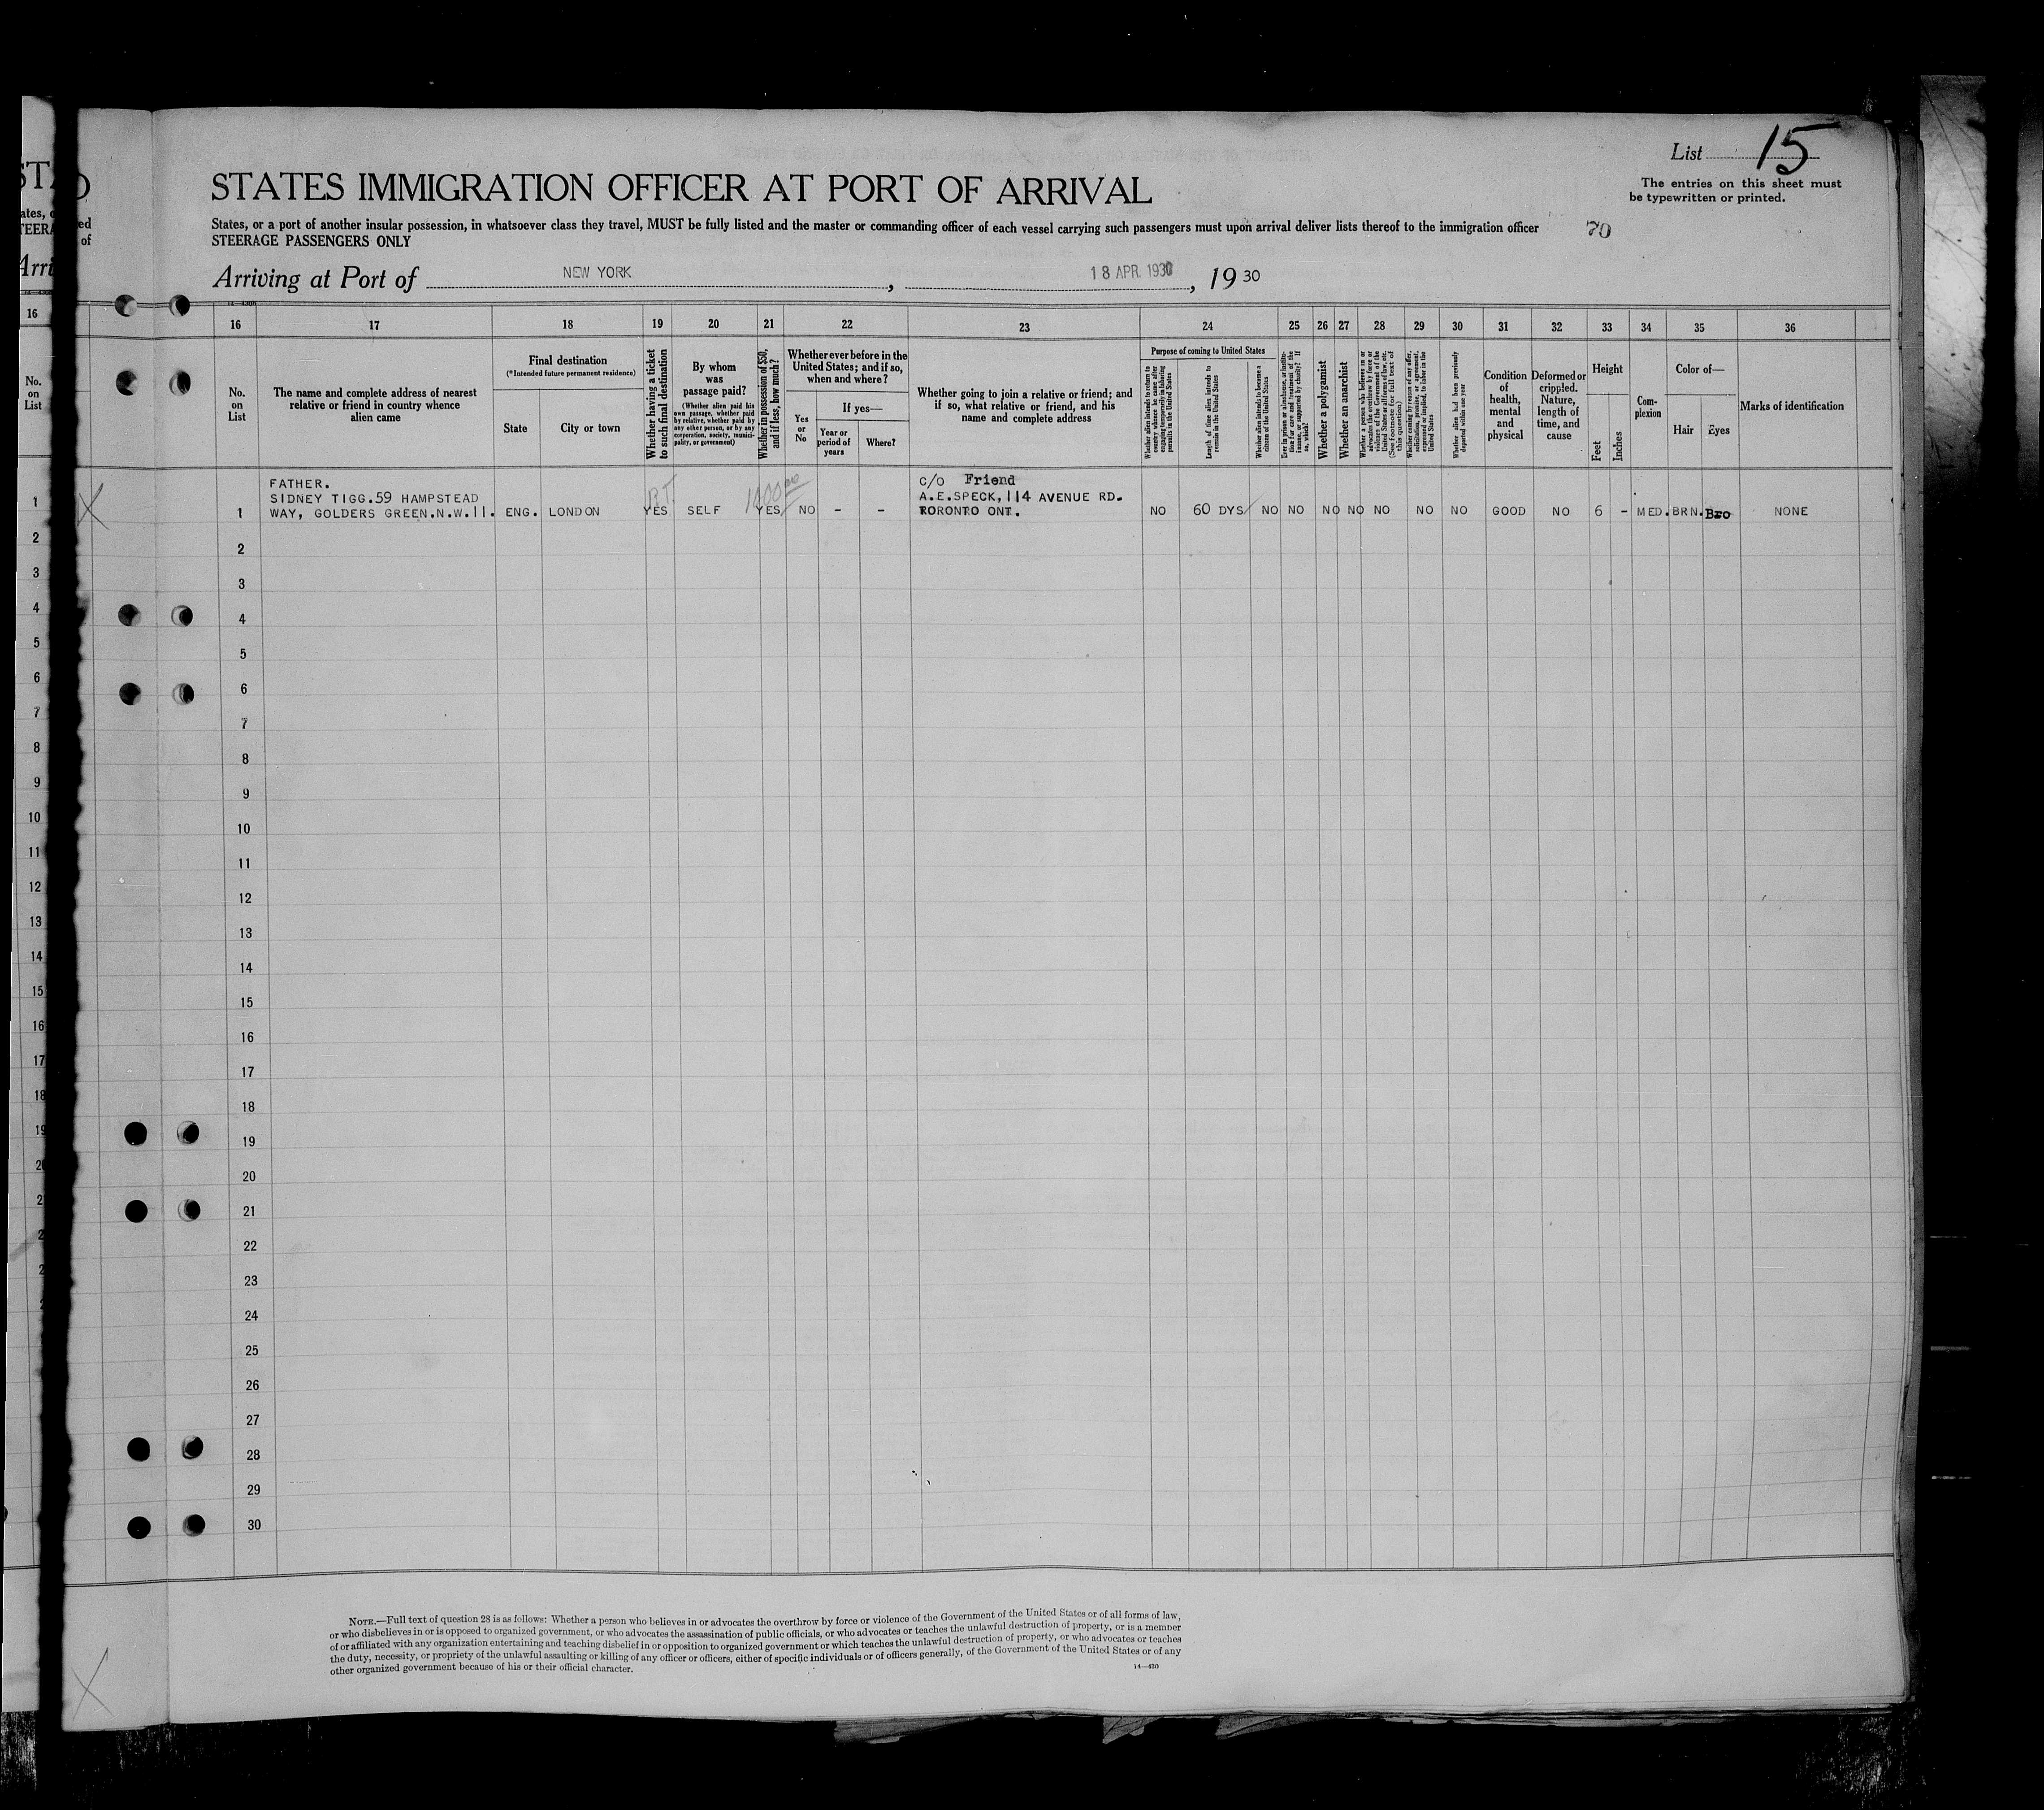 List 15
The entries on this sheet must
be typewritten or printed.
STATES IMMIGRATION OFFICER AT PORT OF ARRIVAL
States, or a port of another insular possession, in whatsoever class they travel, MUST be fully listed and the master or commanding officer of each vessel carrying such passengers must upon arrival deliver lists thereof to the immigration officer
70
STEERAGE PASSENGERS ONLY
Arriving at Port of NEW YORK, 18 APR. 1930, 19 30
16 17 18 19 20 21 22 23 24 25 26 27 28 29 30 31 32 33 34 35 36
No. on List
The name and complete address of nearest
relative or friend in country whence
alien came
Final destination
(*Intended future permanent residence)
State
City or town
Whether having a ticket
to such final destination
By whom
was
passage paid?
(Whether alien paid his
own passage, whether paid
by relative, whether paid by
any other person, or by any
corporation, society, munici-
pality, or government)
Whether in possession of $50,
and if less, how much?
Whether ever before in the
United States; and if so,
when and where?
Yes
or
No
If yes—
Year or
period of
years
Where?
Whether going to join a relative or friend; and
if so, what relative or friend, and his
name and complete address
Purpose of coming to United States
Whether alien intends to return to
country whence he came after
engaging temporarily in laboring
pursuits in the United States
Length of time alien intends to
remain in the United States
Whether alien intends to become a
citizen of the United States
Ever in prison or almshouse, or institu-
tion for care and treatment of the
insane, or supported by charity? If
so, which?
Whether a polygamist
Whether an anarchist
Whether a person who believes in or
advocates the overthrow by force or
violence of the Government of the
United States or all forms of law, etc.
(See footnote for full text of
this question)
Whether coming by reason of any offer,
solicitation, promise, or agreement,
expressed or implied, to labor in the
United States
Whether alien had been previously
deported within one year
Condition
of
health,
mental
and
physical
Deformed or
crippled.
Nature,
length of
time, and
cause
Height
Feet
Inches
Com-
plexion
Color of—
Hair
Eyes
Marks of identification
FATHER.
SIDNEY TIGG.59 HAMPSTEAD
1 WAY, GOLDERS GREEN.N.W.11. ENG. LONDON YES SELF YES NO - -
c/o Friend
A.E.SPECK,114 AVENUE RD.
TORONTO ONT. NO 60 DYS NO NO NO NO NO NO NO GOOD NO 6 - MED. BRN. Bro NONE
2
3
4
5
6
7
8
9
10
11
12
13
14
15
16
17
18
19
20
21
22
23
24
25
26
27
28
29
30
NOTE.—Full text of question 28 is as follows: Whether a person who believes in or advocates the overthrow by force or violence of the Government of the United States or of all forms of law,
or who disbelieves in or is opposed to organized government, or who advocates the assassination of public officials, or who advocates or teaches the unlawful destruction of property, or is a member
of or affiliated with any organization entertaining and teaching disbelief in or opposition to organized government or which teaches the unlawful destruction of property, or who advocates or teaches
the duty, necessity, or propriety of the unlawful assaulting or killing of any officer or officers, either of specific individuals or of officers generally, of the Government of the United States or of any
other organized government because of his or their official character.
14—430